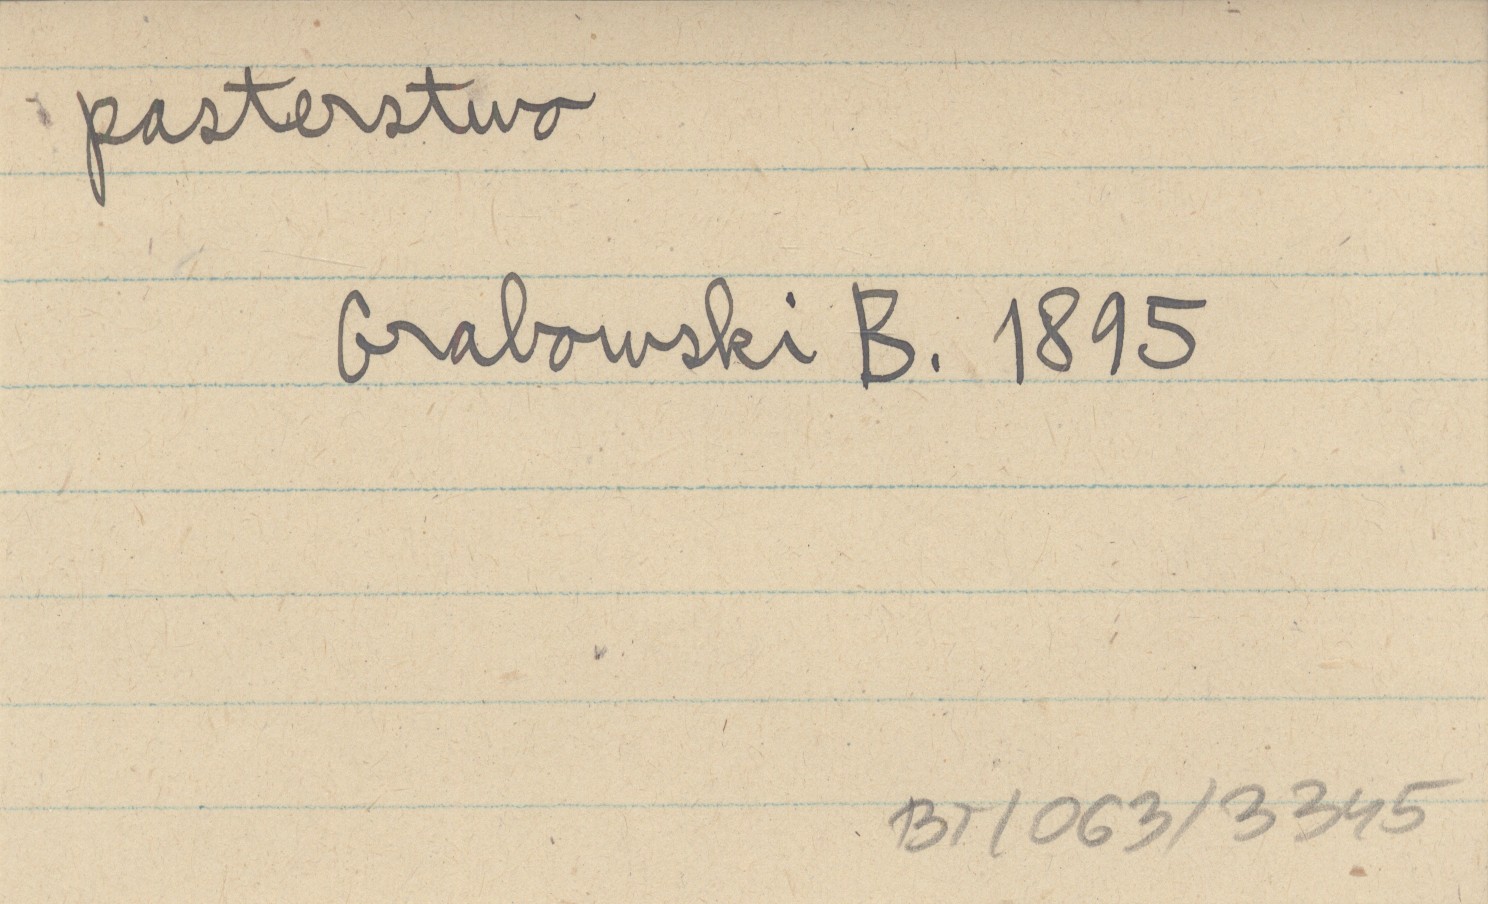 pasterstwo
Grabowski B. 1895
BT/063/3345